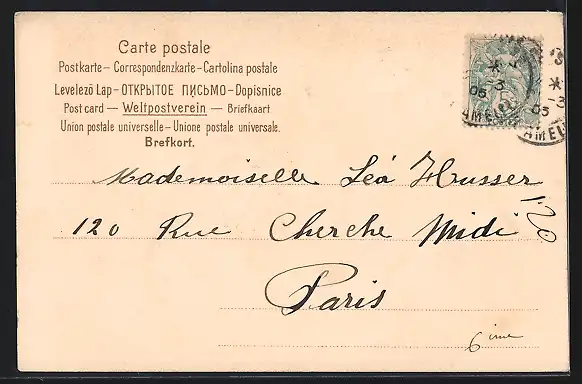 Carte postale
Postkarte – Correspondenzkarte – Cartolina postale
Levelező Lap – ОТКРЫТОЕ ПИСЬМО – Dopisnice
Post card — Weltpostverein — Briefkaart
Union postale universelle – Unione postale universale.
Brefkort.
* -3
05
AMEL
* -3
05
AMEL
Mademoiselle Léa Husser
120 Rue Cherche Midi
120
Paris
6 ème